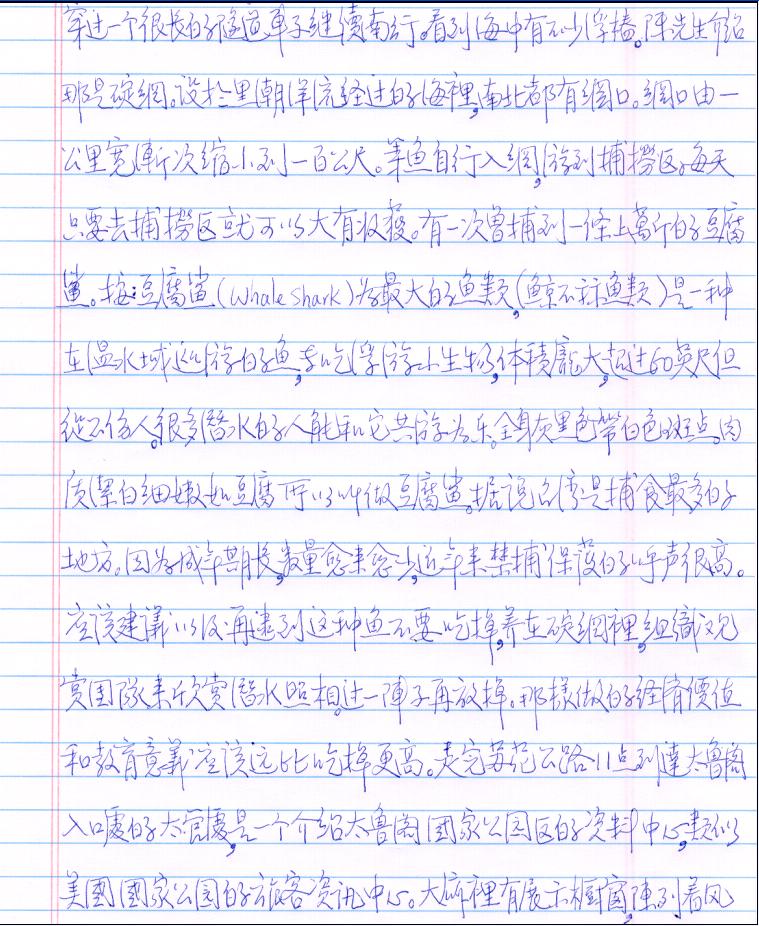 穿过一个很长的隧道車子继續南行。看到海中有不少浮樁。陳先生介绍
那是碇網。设於黑潮洋流经过的海裡,南北都有網口。網口由一
公里宽漸次缩小到一百公尺。羣鱼自行入網,游到捕撈区。每天
只要去捕撈区就可以大有收穫。有一次曾捕到一條上萬斤的豆腐
鲨。按:豆腐鲨(Whale Shark)为最大的鱼類,(鲸不称鱼類)是一种
在溫水域巡游的鱼,专吃浮游小生物,体積龐大,超过60英尺但
從不伤人。很多潛水的人能和它共游为乐。全身灰黑色带白色斑点。肉
质潔白细嫩如豆腐所以叫做豆腐鲨。据说台湾是捕食最多的
地方。因为成年期长,数量愈来愈少,近年来禁捕保護的呼声很高。
应该建議以後再逮到这种鱼不要吃掉,养在碇網裡,组織观
赏团隊来欣赏潛水照相。过一陣子再放掉。那樣做的经济價值
和教育意義应该远比吃掉更高。走完苏花公路11点到達太鲁阁
入口處的太管處,是一个介绍太鲁阁国家公园区的资料中心,類似
美國國家公园的旅客资讯中心。大廳裡有展示橱窗,陳列着风